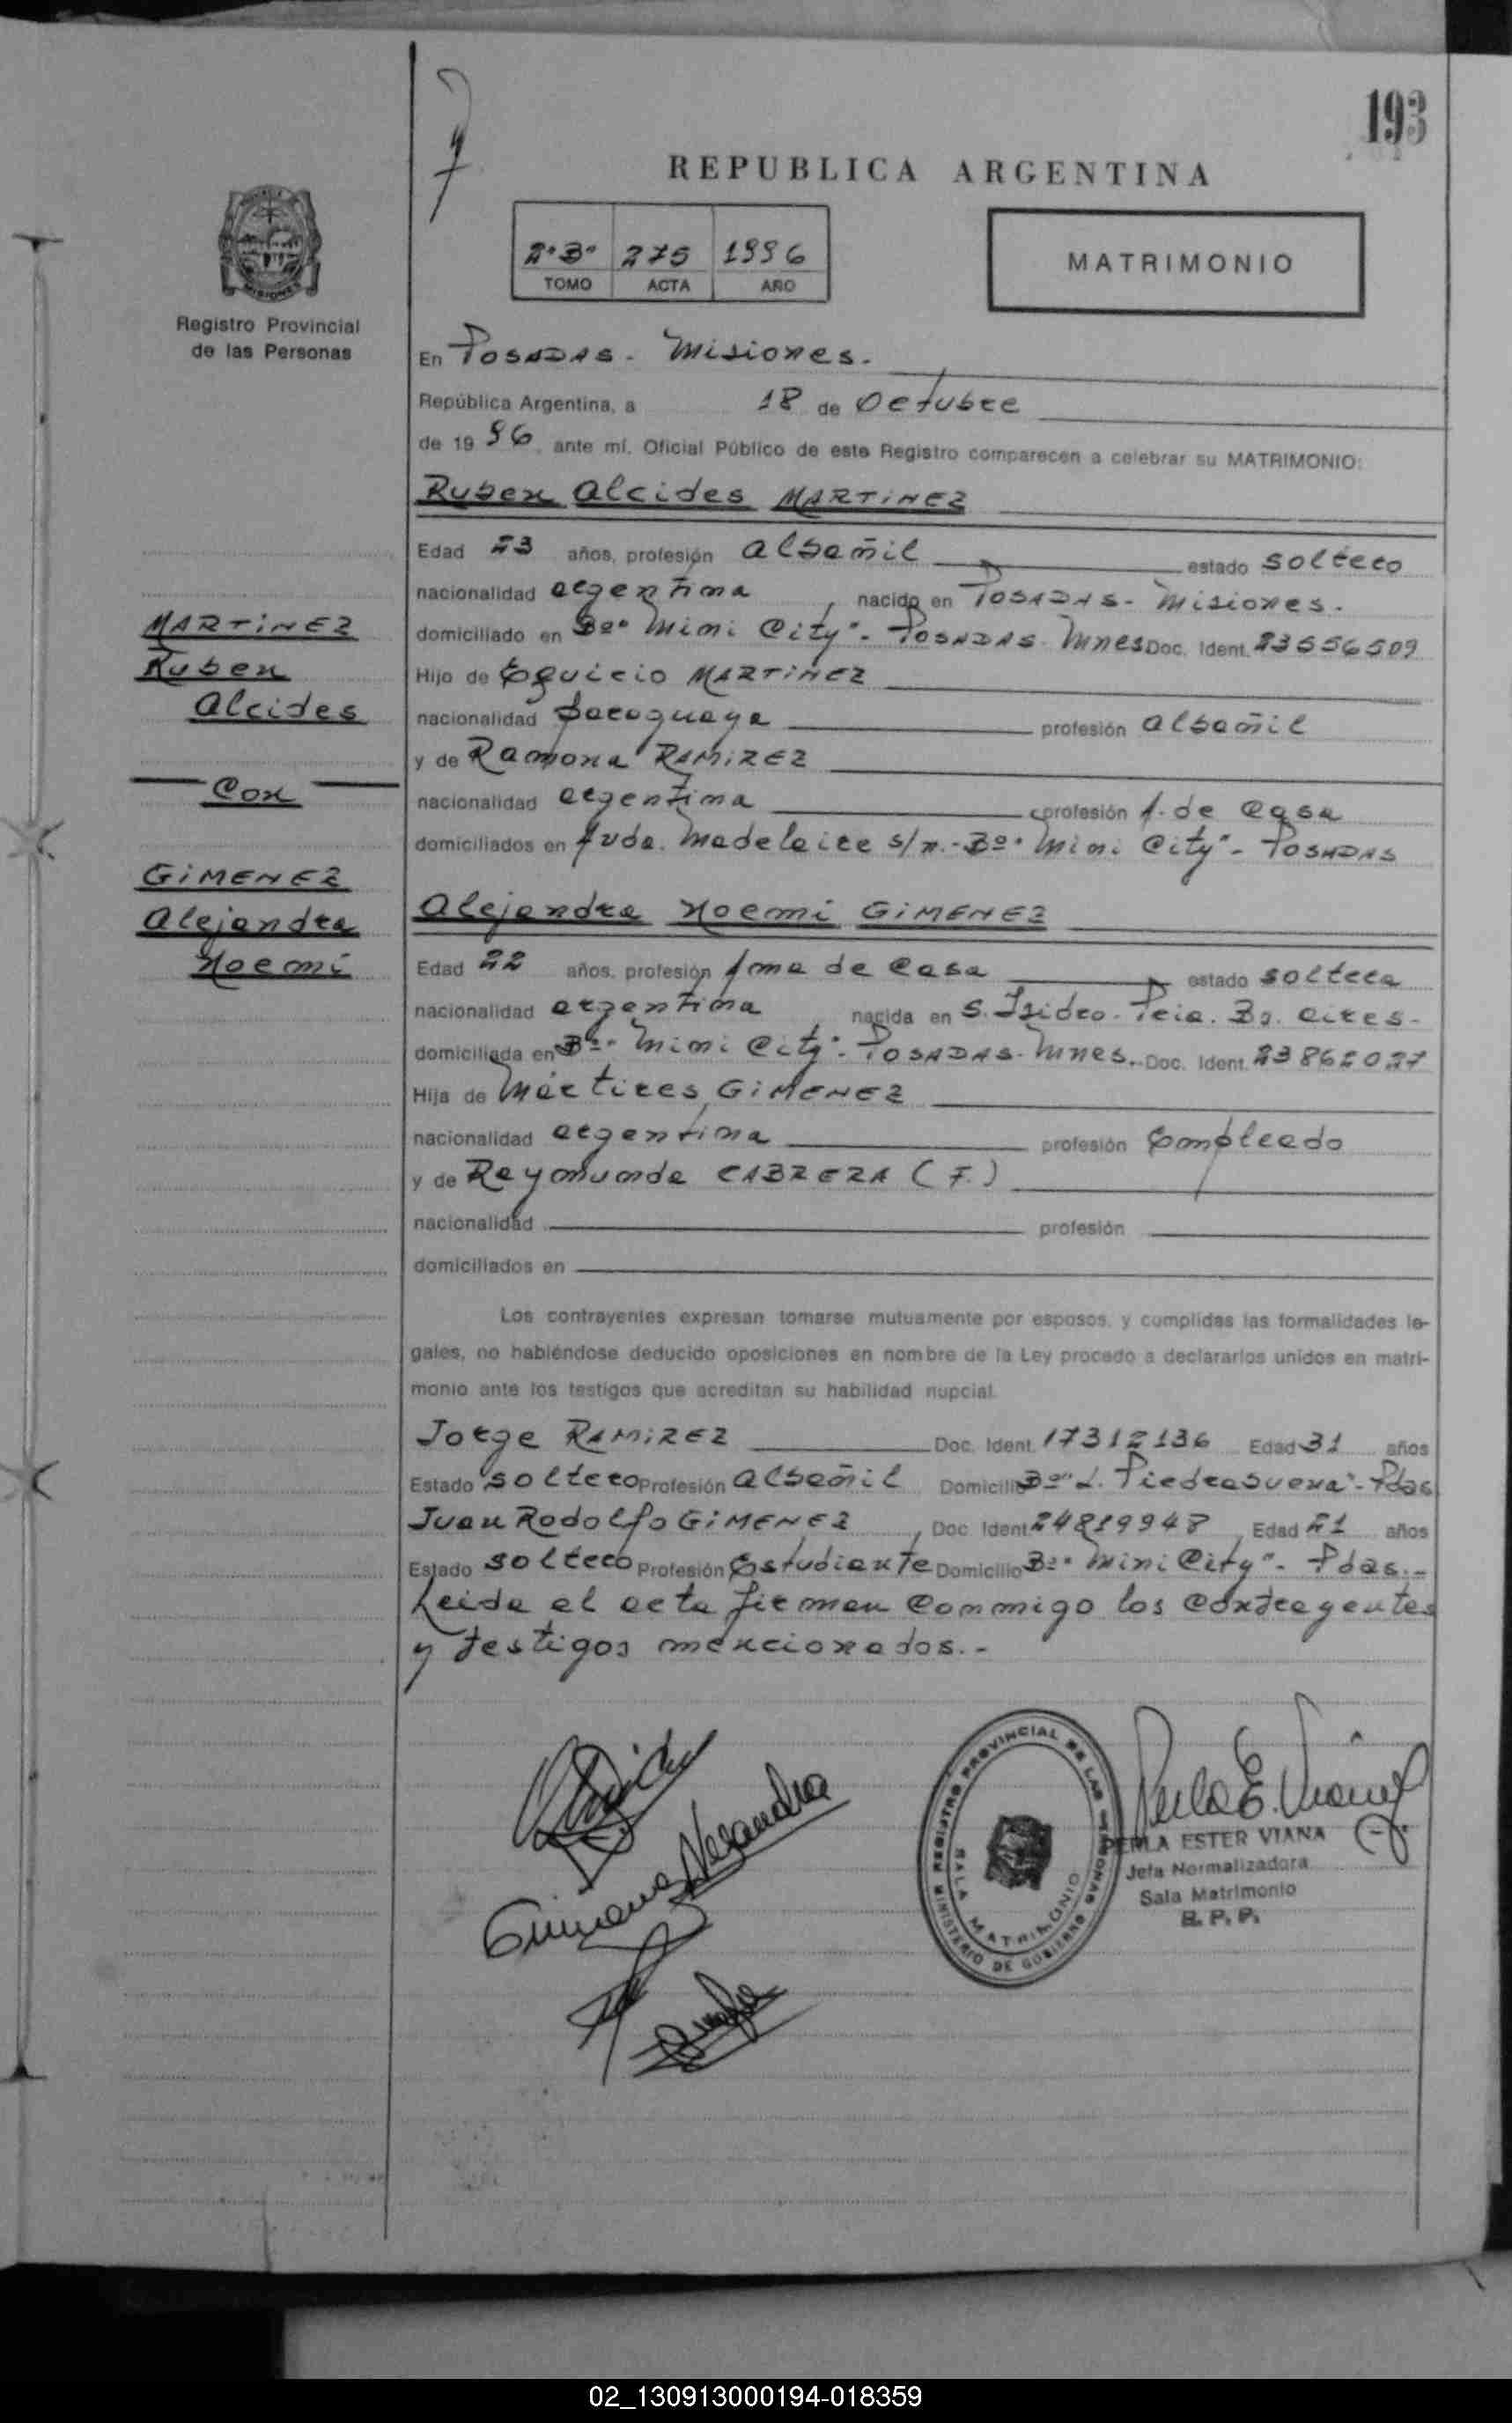 193
REPUBLICA ARGENTINA
2º Bº 275 1996
TOMO ACTA AÑO
MATRIMONIO
MISIONES
Registro Provincial
de las Personas
En POSADAS - Misiones.-
República Argentina, a 18 de Octubre
de 19 96, ante mí, Oficial Público de este Registro comparecen a celebrar su MATRIMONIO:
Ruben Alcides MARTINEZ
Edad 23 años, profesión albañil estado soltero
nacionalidad argentina, nacido en POSADAS - Misiones.
domiciliado en Bº "Mini City" - POSADAS - Mnes Doc. Ident. 23556509
Hijo de MARTINEZ
nacionalidad paraguaya profesión albañil
y de Ramona RAMIREZ
nacionalidad argentina profesión A. de casa
domiciliados en Avda. s/n.- Bº "Mini City" - POSADAS
Alejandra Noemi GIMENEZ
Edad 22 años, profesión Ama de casa estado soltera
nacionalidad argentina nacida en S. Isidro - Pcia. Bs. Aires -
domiciliada en Bº "Mini City" - POSADAS - Mnes. Doc. Ident. 23862027
Hija de Mártires GIMENEZ
nacionalidad argentina profesión Empleado
y de Raymunda CABRERA (F.)
nacionalidad profesión
domiciliados en
Los contrayentes expresan tomarse mutuamente por esposos, y cumplidas las formalidades le-
gales, no habiéndose deducido oposiciones en nombre de la Ley procedo a declararlos unidos en matri-
monio ante los testigos que acreditan su habilidad nupcial.
Jorge RAMIREZ Doc. Ident. 17312136 Edad 31 años
Estado soltero Profesión albañil Domicilio Bº "L. Piedrabuena" - Pdas
Juan Rodolfo GIMENEZ, Doc. Ident. 24819948 Edad 21 años
Estado soltero Profesión Estudiante Domicilio Bº "Mini City" - Pdas.-
Leida el acta firman conmigo los contrayentes
y testigos mencionados.-
MARTINEZ
Ruben
Alcides
Con
GIMENEZ
Alejandra
Noemi
Gimenez Alejandra
REGISTRO PROVINCIAL DE LAS PERSONAS
MINISTERIO DE GOBIERNO
SALA MATRIMONIO
Perla E. Viana
PERLA ESTER VIANA
Jefa Normalizadora
Sala Matrimonio
R. P. P.
02_130913000194-018359